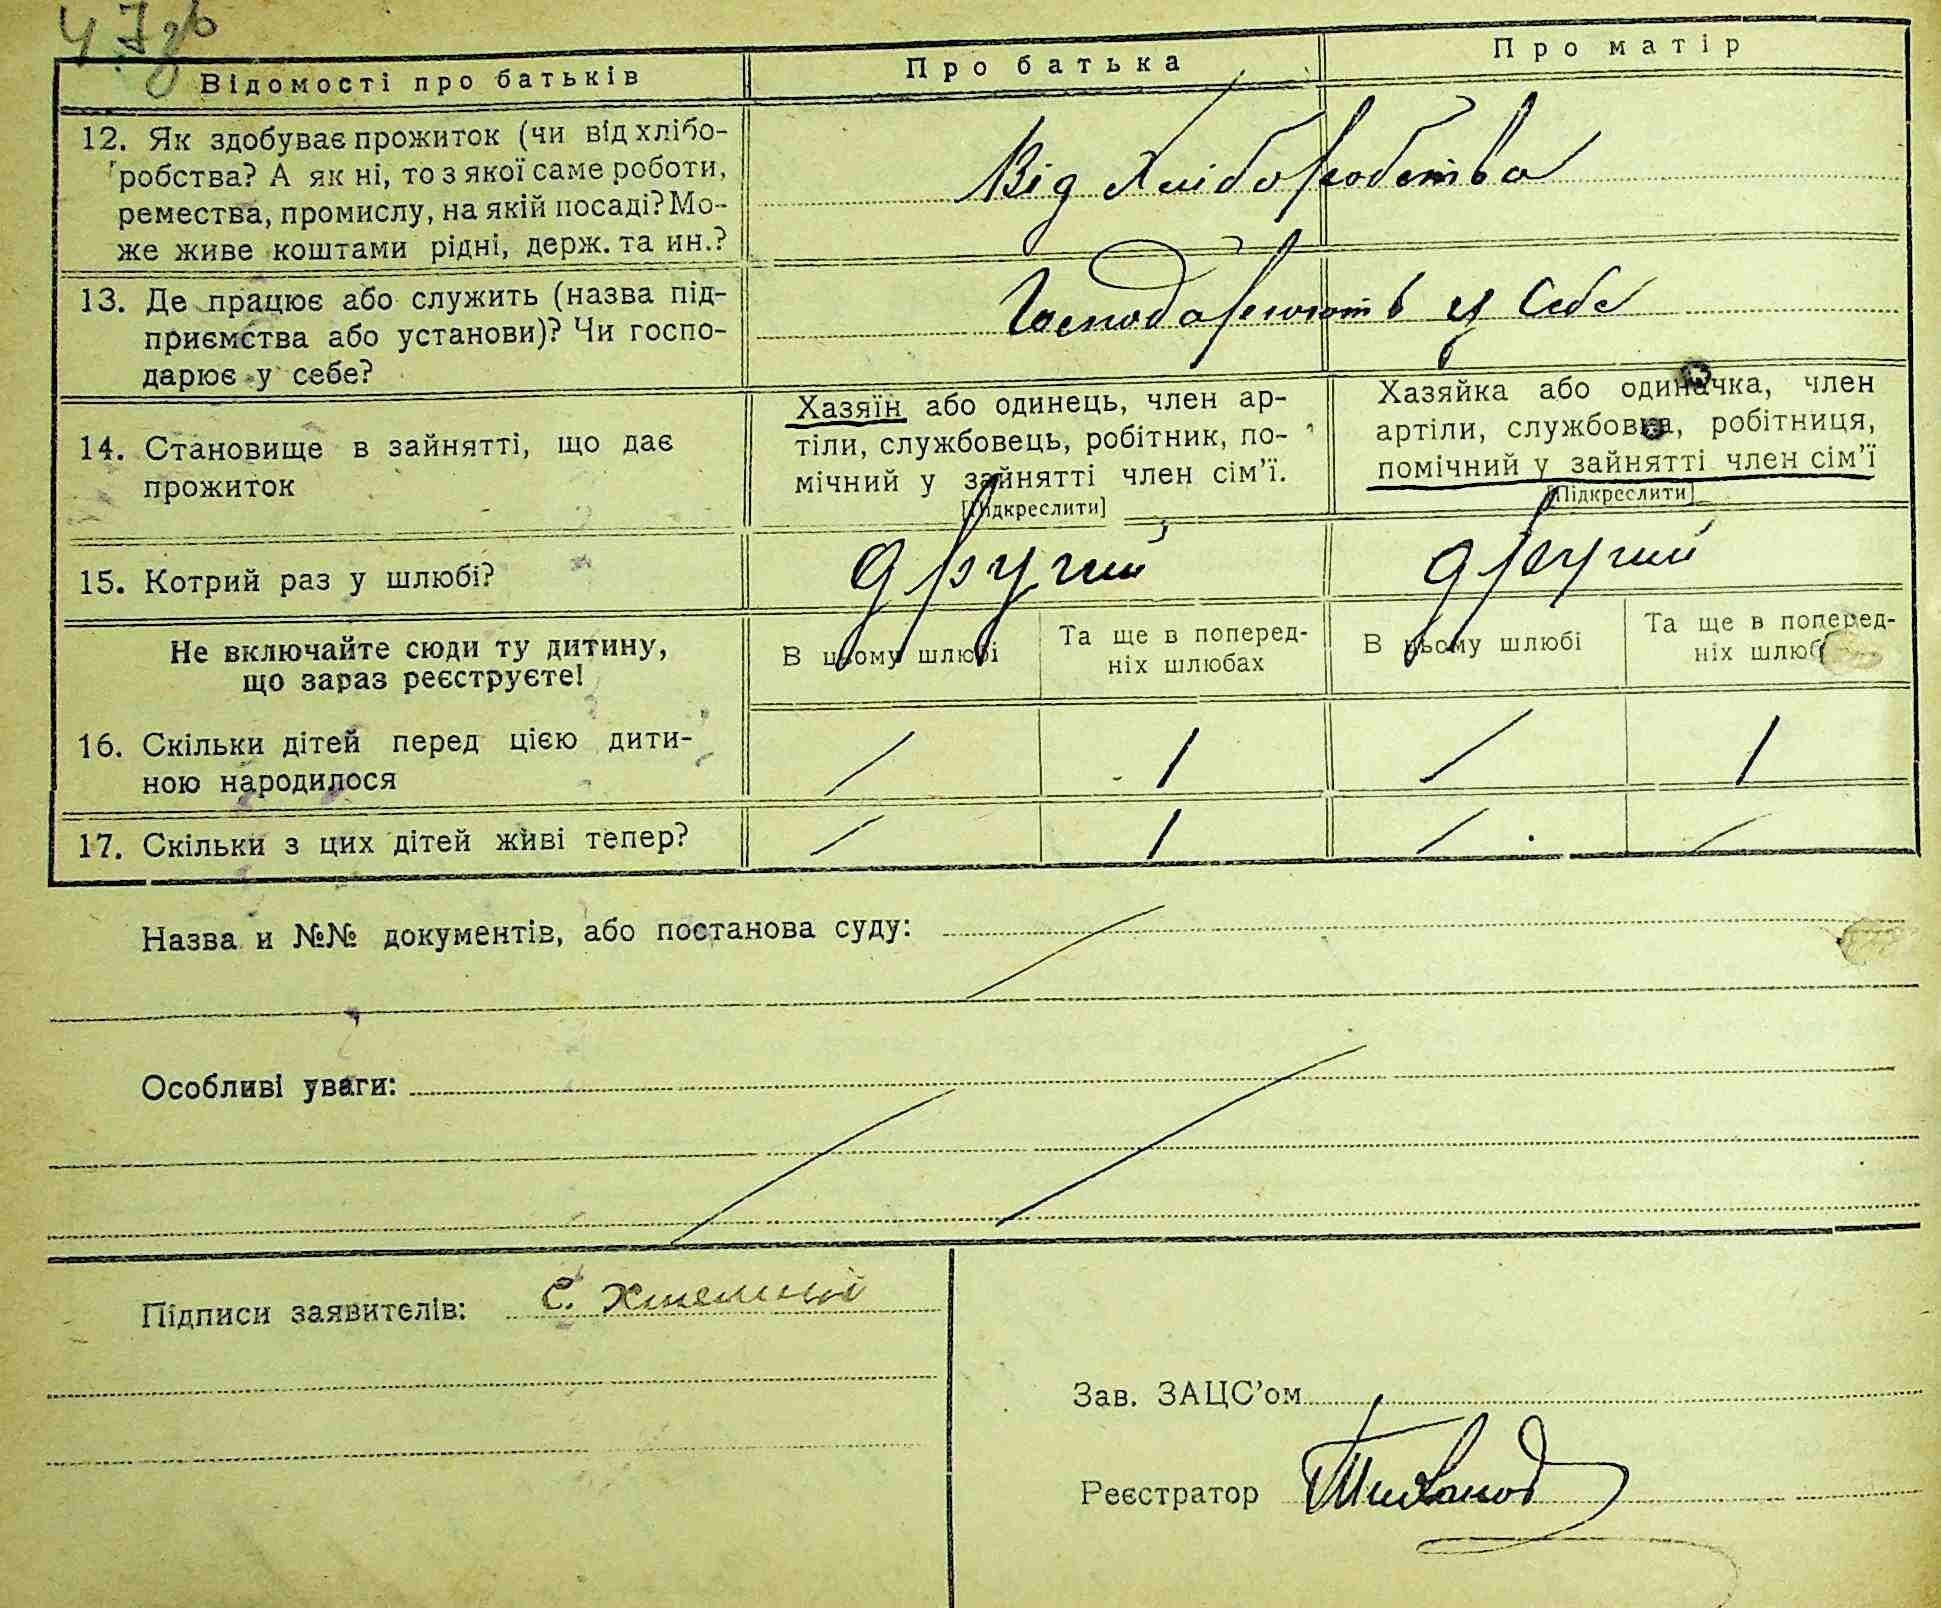 47зв
Відомості про батьків
Про батька
Про матір
12. Як здобуває прожиток (чи від хлібо-
робства? А як ні, то з якої саме роботи,
ремества, промислу, на якій посаді? Мо-
же живе коштами рідні, держ. та ин.?
Від Хліборобства
13. Де працює або служить (назва під-
приємства або установи)? Чи госпо-
дарює у себе?
Господарюють у Себе
14. Становище в зайнятті, що дає
прожиток
Хазяїн або одинець, член ар-
тіли, службовець, робітник, по-
мічний у зайнятті член сім'ї.
[Підкреслити]
Хазяйка або одиначка, член
артіли, службовка, робітниця,
помічний у зайнятті член сім'ї
[Підкреслити]
15. Котрий раз у шлюбі?
другий
другий
Не включайте сюди ту дитину,
що зараз реєструєте!
В цьому шлюбі
Та ще в поперед-
ніх шлюбах
В цьому шлюбі
Та ще в поперед-
ніх шлюбах
16. Скільки дітей перед цією дити-
ною народилося
/ 1 / 1
17. Скільки з цих дітей живі тепер?
/ 1 / /
Назва и №№ документів, або постанова суду:
Особливі уваги:
Підписи заявителів: С.
Зав. ЗАЦС'ом
Реєстратор